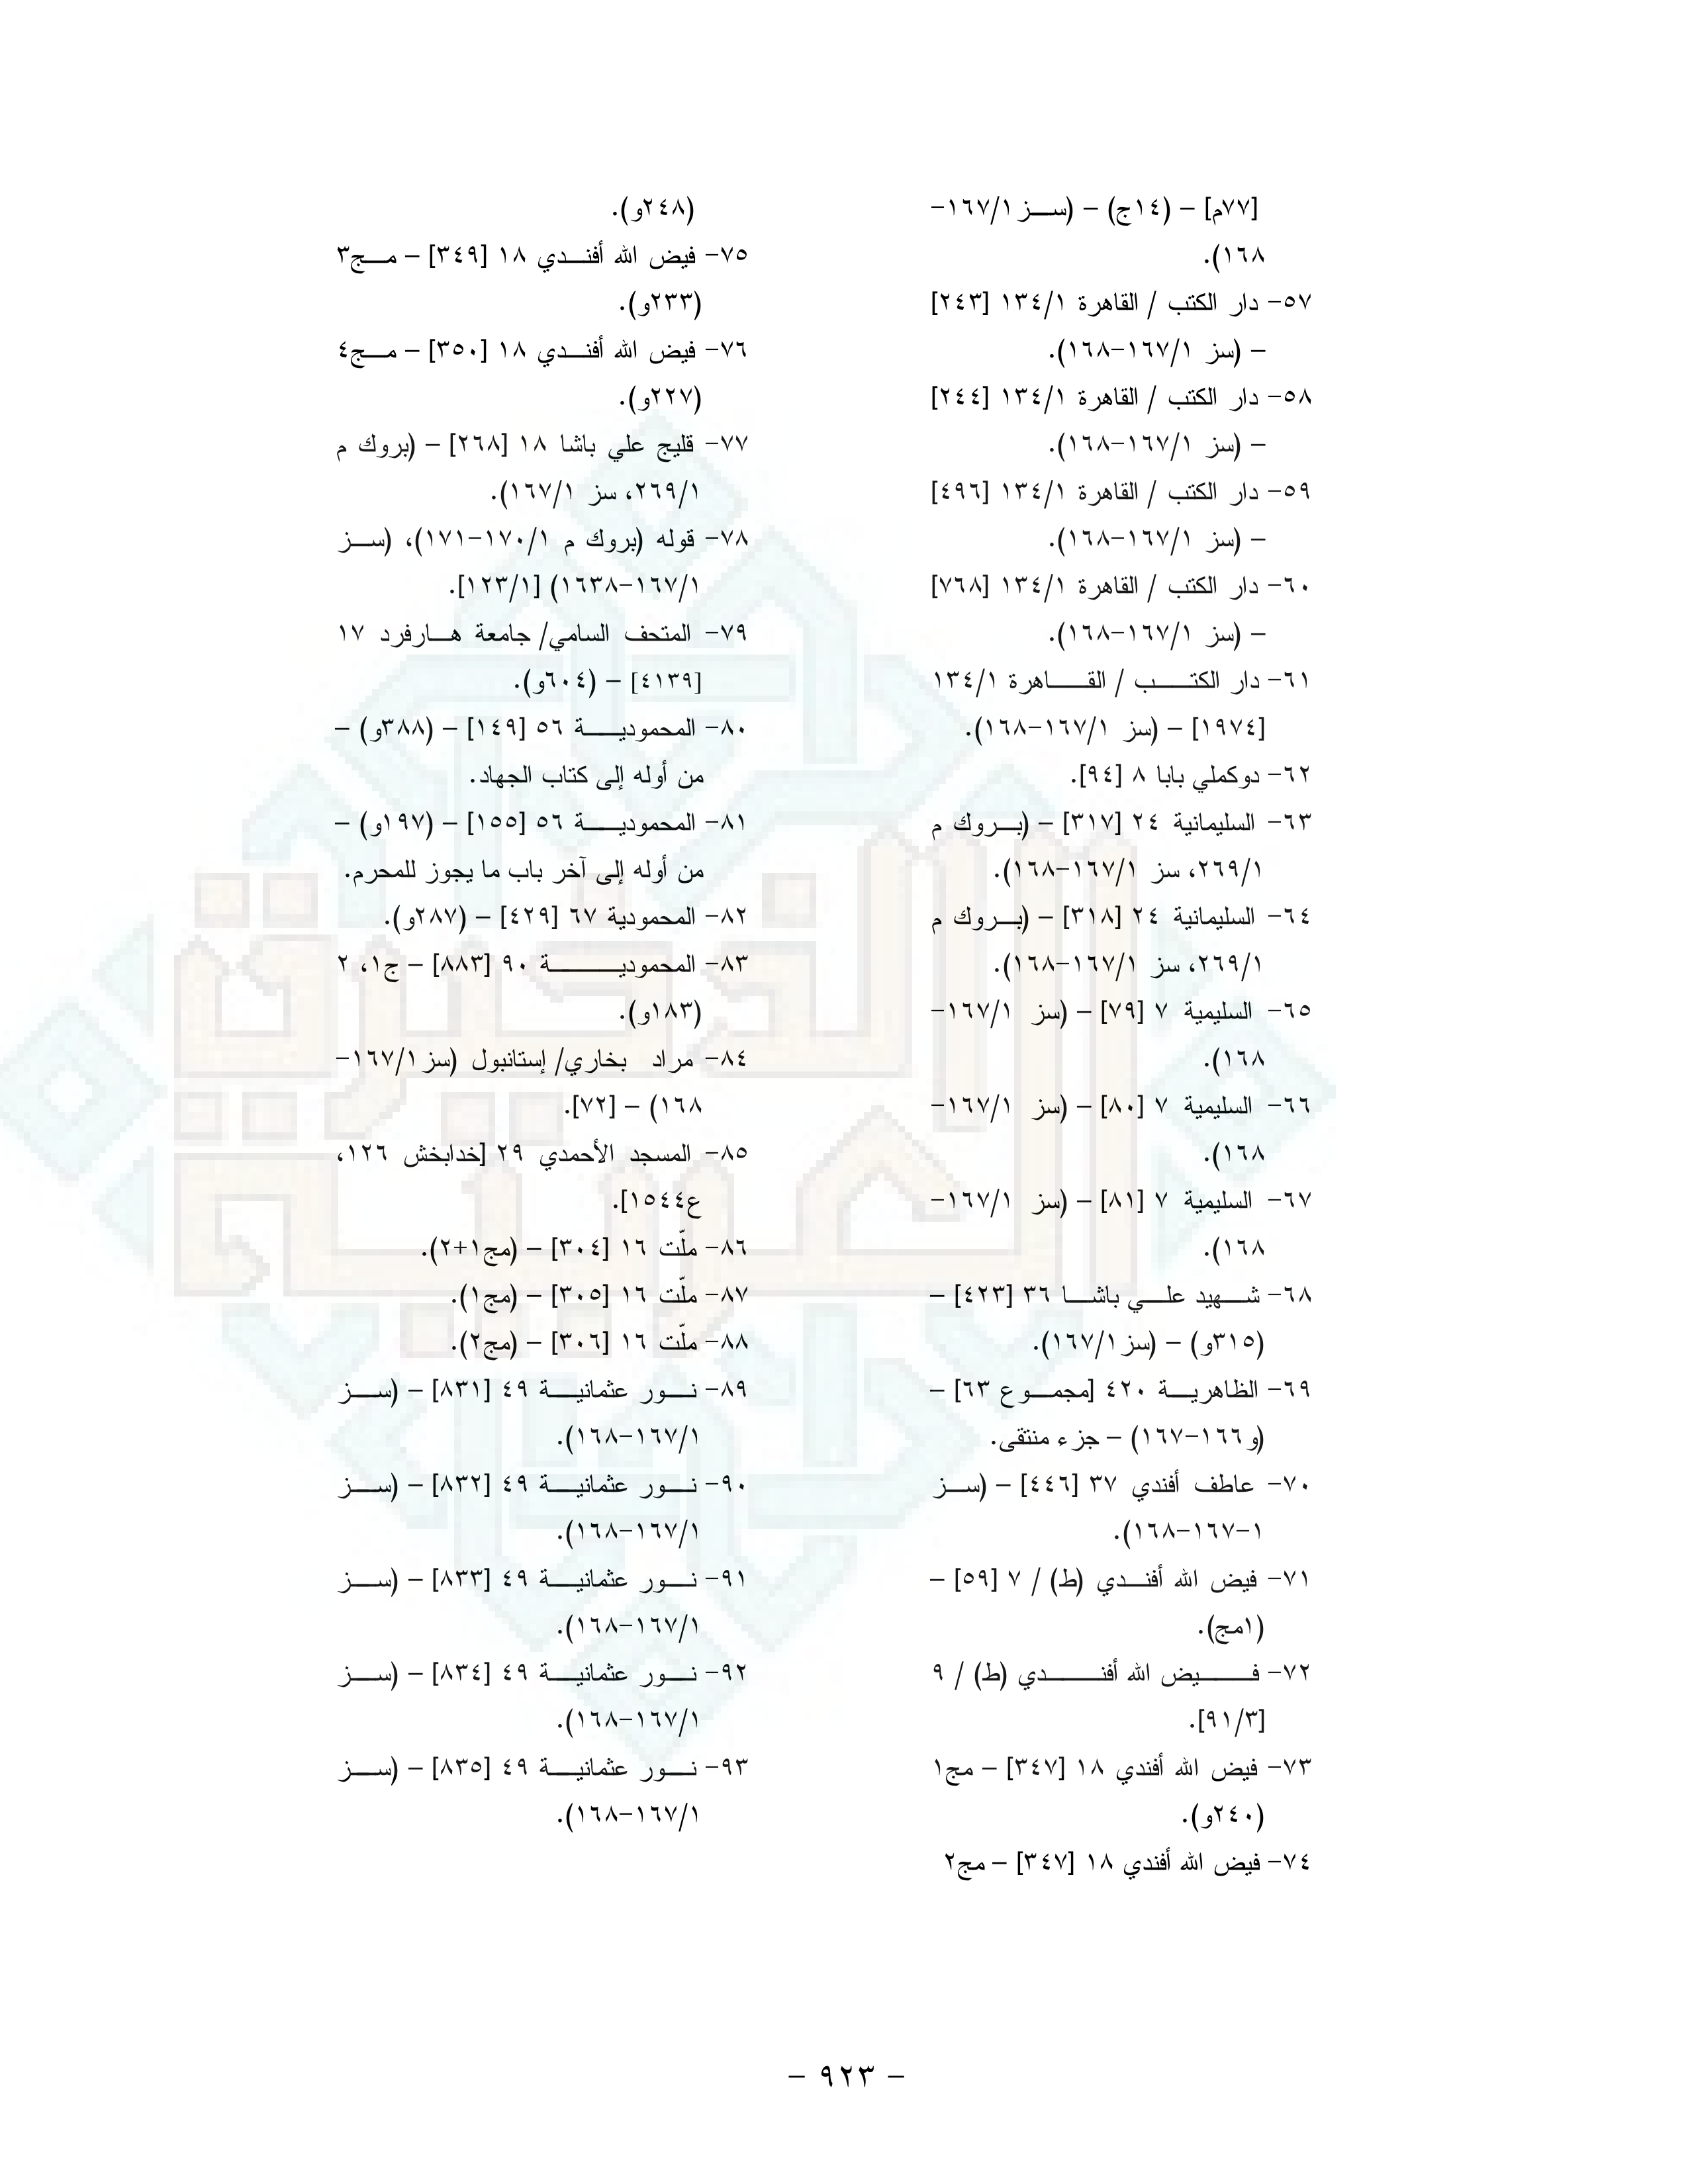 [٧٧م] – (١٤ج) – (سز١/١٦٧-
١٦٨).
٥٧- دار الكتب / القاهرة ١٣٤/١ [٢٤٣]
– (سز ١/١٦٧-١٦٨).
٥٨- دار الكتب / القاهرة ١٣٤/١ [٢٤٤]
– (سز ١/١٦٧-١٦٨).
٥٩- دار الكتب / القاهرة ١٣٤/١ [٤٩٦]
– (سز ١/١٦٧-١٦٨).
٦٠- دار الكتب / القاهرة ١٣٤/١ [٧٦٨]
– (سز ١/١٦٧-١٦٨).
٦١- دار الكتب / القاهرة ١٣٤/١
[١٩٧٤] – (سز ١/١٦٧-١٦٨).
٦٢- دوكملي بابا ٨ [٩٤].
٦٣- السليمانية ٢٤ [٣١٧] – (بروك م
٢٦٩/١، سز ١/١٦٧-١٦٨).
٦٤- السليمانية ٢٤ [٣١٨] – (بروك م
٢٦٩/١، سز ١/١٦٧-١٦٨).
٦٥- السليمية ٧ [٧٩] – (سز ١/١٦٧-
١٦٨).
٦٦- السليمية ٧ [٨٠] – (سز ١/١٦٧-
١٦٨).
٦٧- السليمية ٧ [٨١] – (سز ١/١٦٧-
١٦٨).
٦٨- شهيد علي باشا ٣٦ [٤٢٣] –
(٣١٥و) – (سز١/١٦٧).
٦٩- الظاهرية ٤٢٠ [مجموع ٦٣] –
(و١٦٦-١٦٧) – جزء منتقى.
٧٠- عاطف أفندي ٣٧ [٤٤٦] – (سز
١-١٦٧-١٦٨).
٧١- فيض الله أفندي (ط) / ٧ [٥٩] –
(١مج).
٧٢- فيض الله أفندي (ط) / ٩
[٩١/٣].
٧٣- فيض الله أفندي ١٨ [٣٤٧] – مج١
(٢٤٠و).
٧٤- فيض الله أفندي ١٨ [٣٤٧] – مج٢
(٢٤٨و).
٧٥- فيض الله أفندي ١٨ [٣٤٩] – مج٣
(٢٣٣و).
٧٦- فيض الله أفندي ١٨ [٣٥٠] – مج٤
(٢٢٧و).
٧٧- قليج علي باشا ١٨ [٢٦٨] – (بروك م
٢٦٩/١، سز ١/١٦٧).
٧٨- قوله (بروك م ١/١٧٠-١٧١)، (سز
١/١٦٧-١٦٣٨) [١٢٣/١].
٧٩- المتحف السامي/ جامعة هارفرد ١٧
[٤١٣٩] – (٦٠٤و).
٨٠- المحمودية ٥٦ [١٤٩] – (٣٨٨و) –
من أوله إلى كتاب الجهاد.
٨١- المحمودية ٥٦ [١٥٥] – (١٩٧و) –
من أوله إلى آخر باب ما يجوز للمحرم.
٨٢- المحمودية ٦٧ [٤٢٩] – (٢٨٧و).
٨٣- المحمودية ٩٠ [٨٨٣] – ج١، ٢
(١٨٣و).
٨٤- مراد بخاري/ إستانبول (سز١/١٦٧-
١٦٨) – [٧٢].
٨٥- المسجد الأحمدي ٢٩ [خدابخش ١٢٦،
ع١٥٤٤].
٨٦- ملّت ١٦ [٣٠٤] – (مج١+٢).
٨٧- ملّت ١٦ [٣٠٥] – (مج١).
٨٨- ملّت ١٦ [٣٠٦] – (مج٢).
٨٩- نور عثمانية ٤٩ [٨٣١] – (سز
١/١٦٧-١٦٨).
٩٠- نور عثمانية ٤٩ [٨٣٢] – (سز
١/١٦٧-١٦٨).
٩١- نور عثمانية ٤٩ [٨٣٣] – (سز
١/١٦٧-١٦٨).
٩٢- نور عثمانية ٤٩ [٨٣٤] – (سز
١/١٦٧-١٦٨).
٩٣- نور عثمانية ٤٩ [٨٣٥] – (سز
١/١٦٧-١٦٨).
- ٩٢٣ -